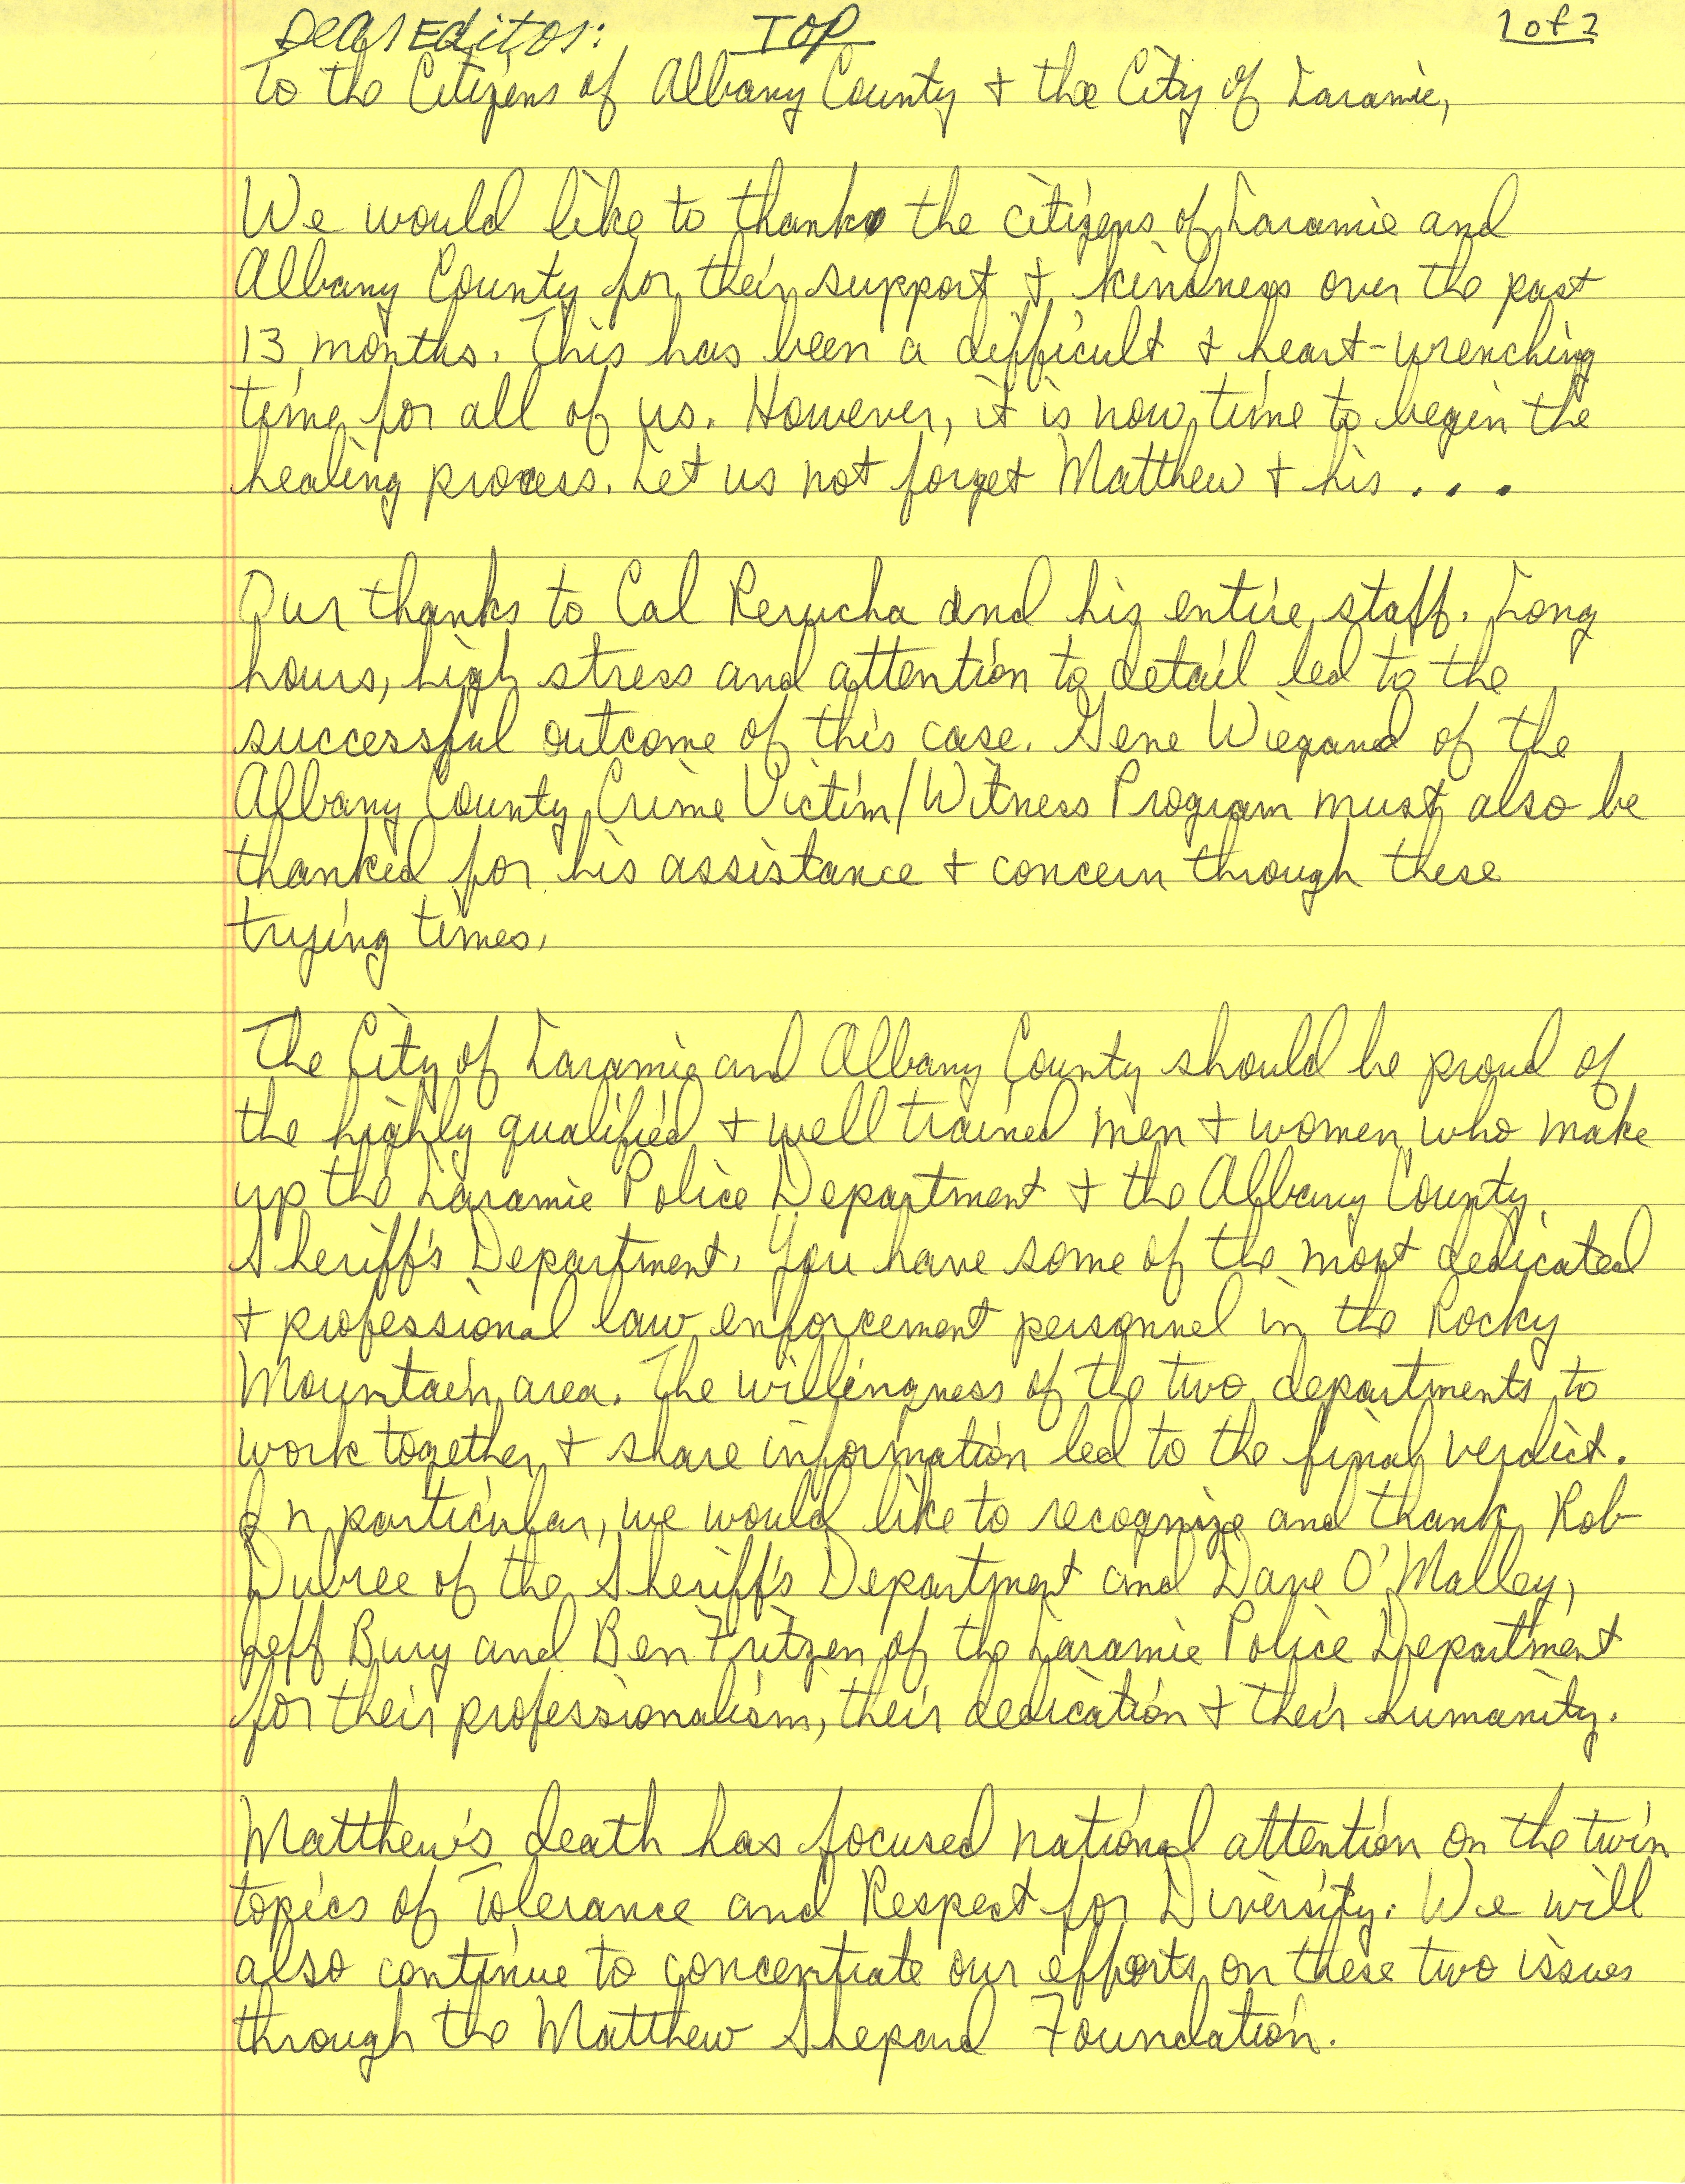 Dear Editor: TOP 1 of 2
To the Citizens of Albany County + the City of Laramie,
We would like to thank the citizens of Laramie and
Albany County for their support + kindness over the past
13 months. This has been a difficult + heart-wrenching
time for all of us. However, it is now time to begin the
healing process. Let us not forget Matthew + his . . .
Our thanks to Cal Rerucha and his entire staff. Long
hours, high stress and attention to detail led to the
successful outcome of this case. Gene Wiegand of the
Albany County Crime Victim/Witness Program must also be
thanked for his assistance + concern through these
trying times.
The City of Laramie and Albany County should be proud of
the highly qualified + well trained men + women who make
up the Laramie Police Department + the Albany County
Sheriff's Department. You have some of the most dedicated
+ professional law enforcement personnel in the Rocky
Mountain area. The willingness of the two departments to
work together + share information led to the final verdict.
In particular, we would like to recognize and thank Rob
Dubree of the Sheriff's Department and Dave O'Malley,
Jeff Bury and Ben Fritzen of the Laramie Police Department
for their professionalism, their dedication + their humanity.
Matthew's death has focused national attention on the twin
topics of Tolerance and Respect for Diversity. We will
also continue to concentrate our efforts on these two issues
through the Matthew Shepard Foundation.